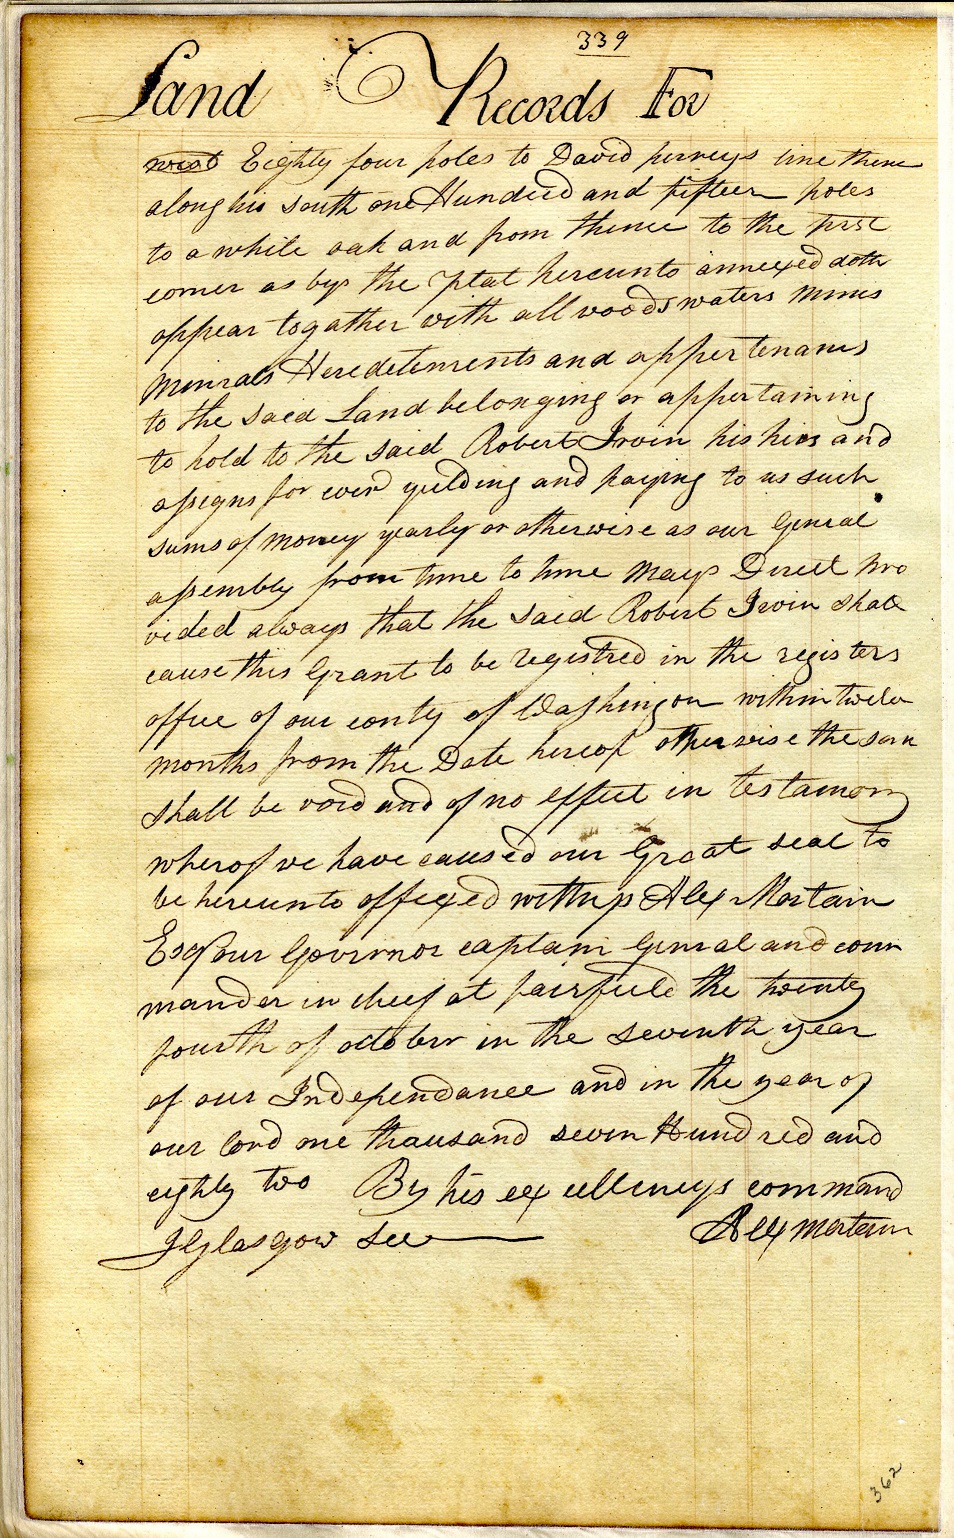 339
Land Records For
west Eighty four poles to David perveys line thence
along his south one Hundred and fifteen poles
to a while oak and from thence to the first
corner as by the plat hereunto annexed doth
appear togather with all woods waters mines
minrals Heredetements and appertenances
to the said Land belonging or appertaining
to hold to the said Robert Irvin his hiers and
assigns for ever yielding and paying to us such
sums of money yearly or otherwise as our General
assembly from time to time may Direct pro
vided always that the said Robert Irvin shall
cause this Grant to be registred in the registers
office of our conty of Washingon within twelve
months from the Date hereof otherwise the same
shall be void and of no effect in testamony
wherof we have caused our Great seal to
be hereunto affexed wittnes Alex Martain
Esqr our Governor captain General and com
mander in cheef at fairfield the twenty
fourth of october in the seventh year
of our Independance and in the year of
our lord one thausand seven Hundred and
eighty two By his excellencys command
J Glasgow Sec Alex Martain
362